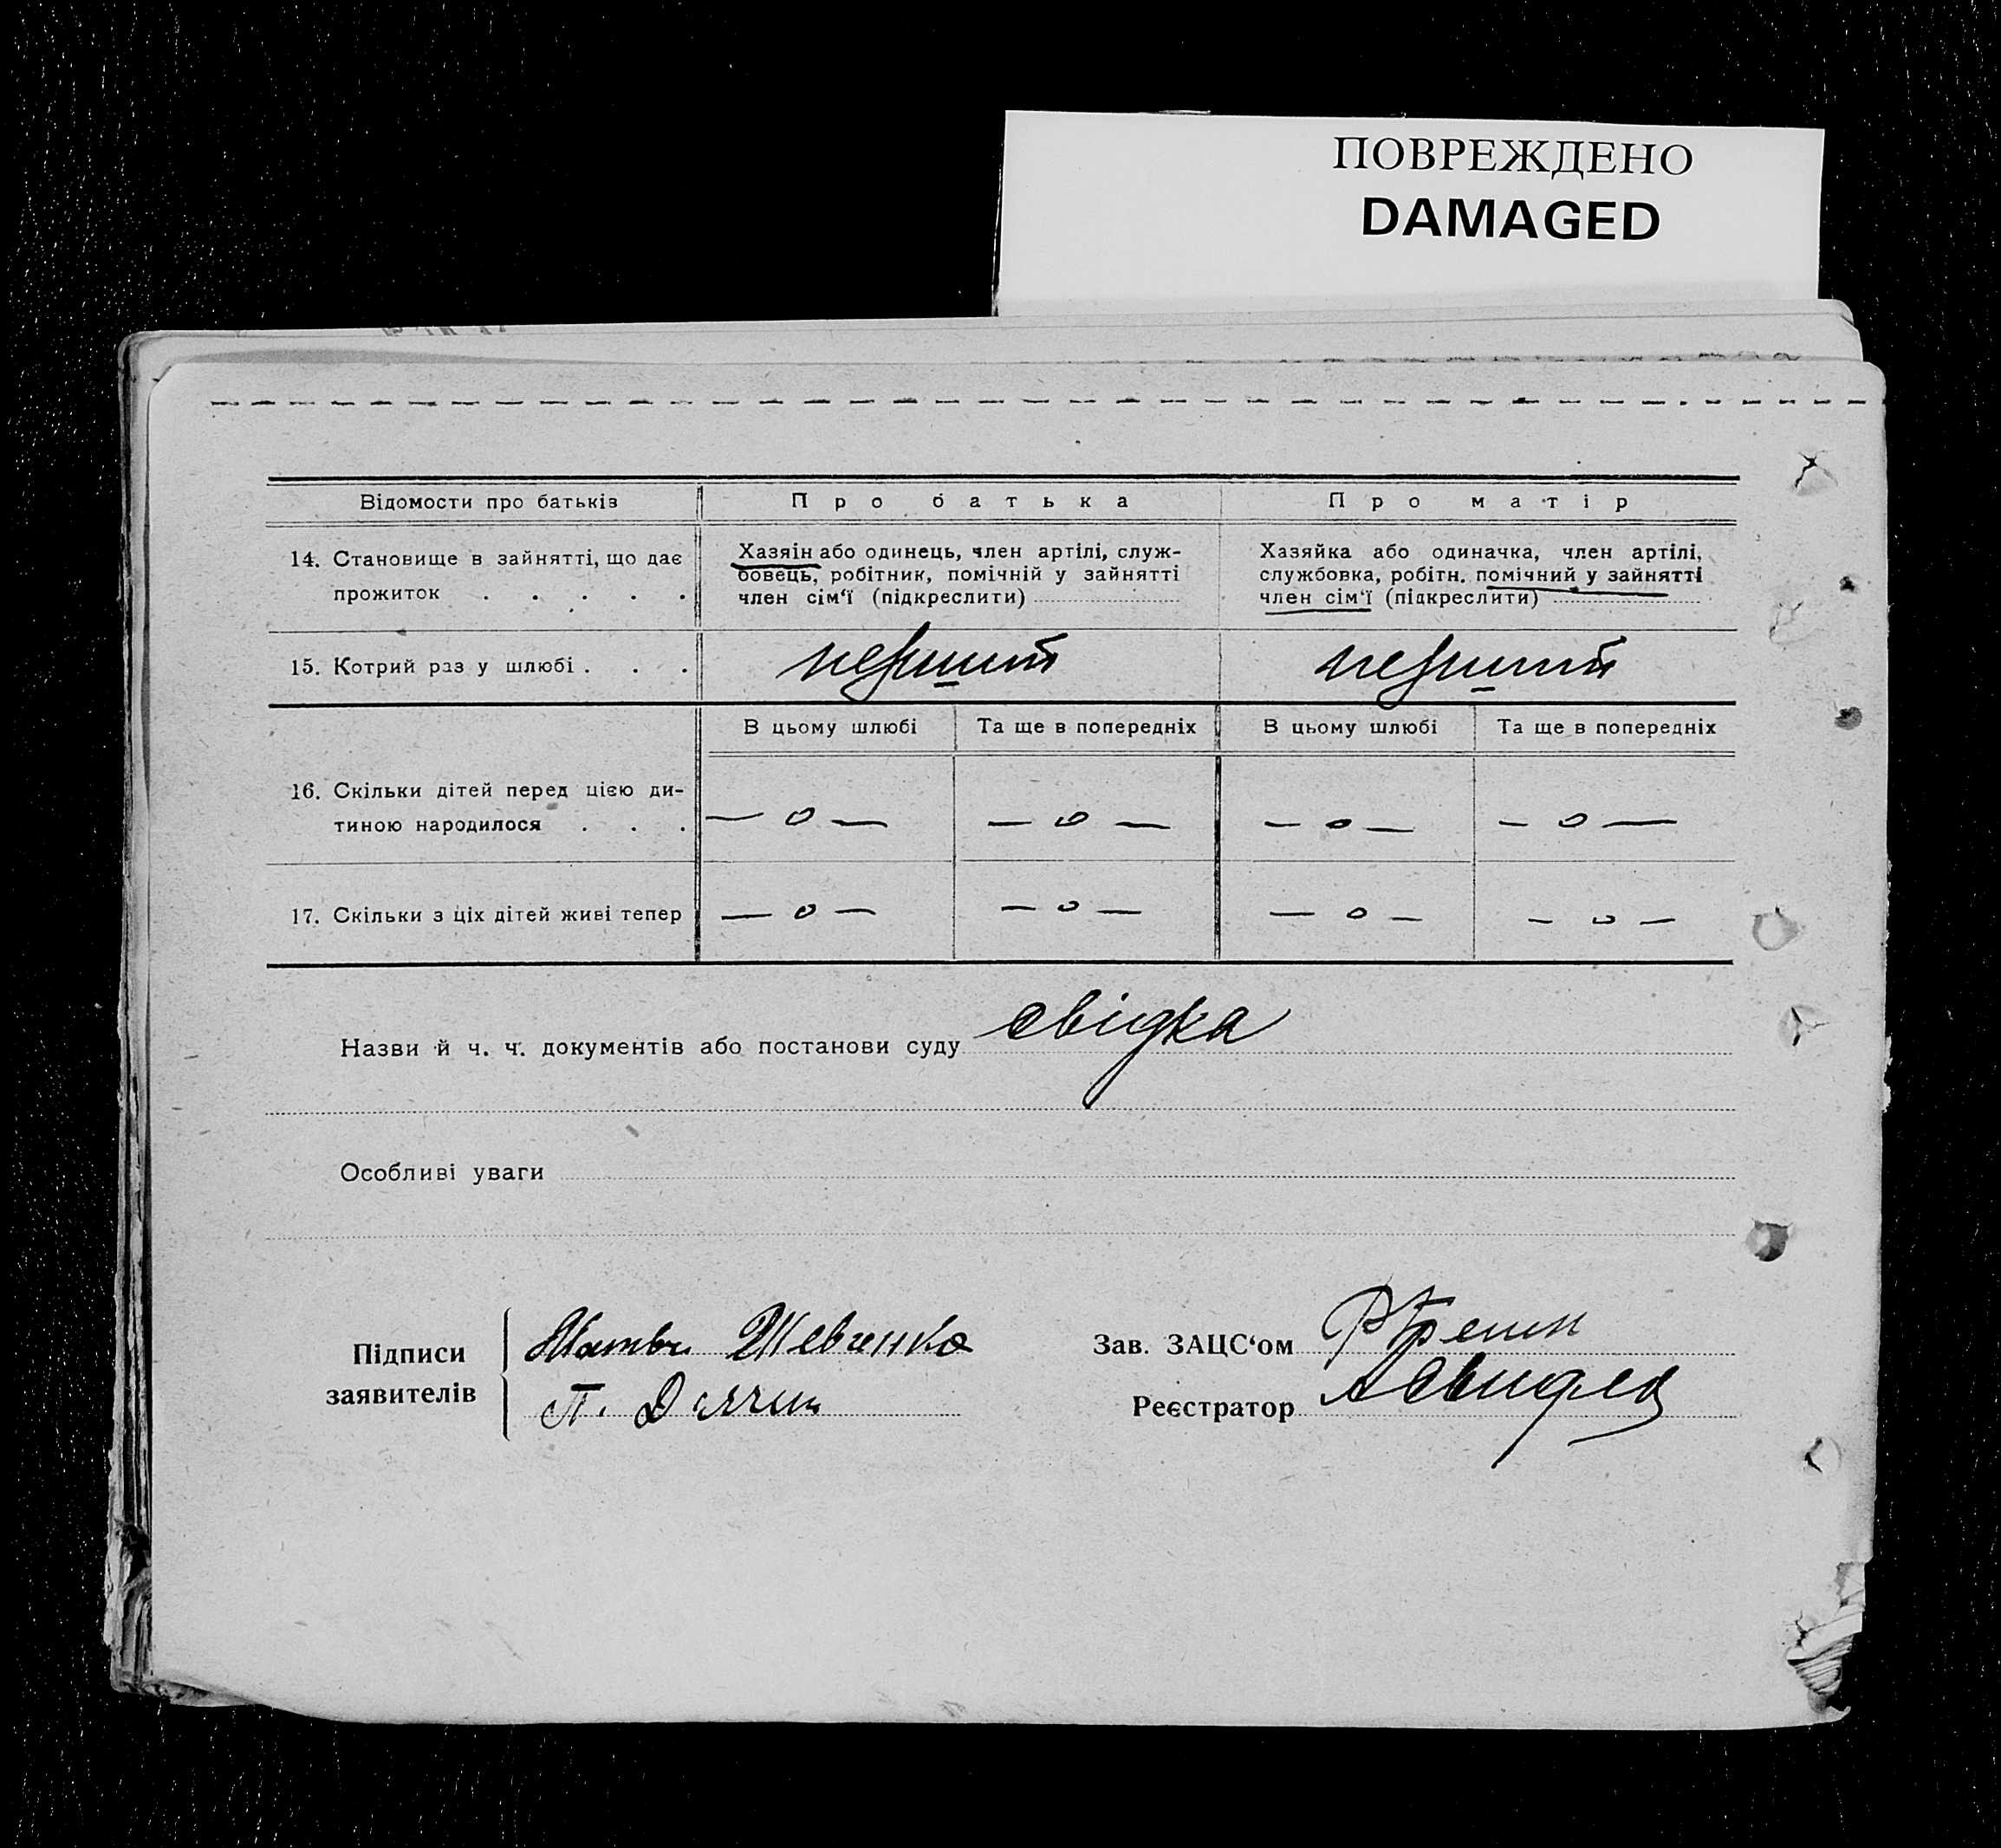 ПОВРЕЖДЕНО
DAMAGED
Відомости про батьків
Про батька
Про матір
14. Становище в зайнятті, що дає
прожиток . . . . .
Хазяін або одинець, член артілі, служ-
бовець, робітник, помічній у зайнятті
член сім‘ї (підкреслити)
Хазяйка або одиначка, член артілі,
службовка, робітн. помічний у зайнятті
член сім‘ї (підкреслити)
15. Котрий раз у шлюбі . . .
перший
перший
В цьому шлюбі
Та ще в попередніх
В цьому шлюбі
Та ще в попередніх
16. Скільки дітей перед цією ди-
тиною народилося . . .
— 0 —
— 0 —
— 0 —
— 0 —
17. Скільки з ціх дітей живі тепер
— 0 —
— 0 —
— 0 —
— 0 —
Назви й ч. ч. документів або постанови суду свідка
Особливі уваги
Підписи
заявителів
Шевченко
П.
Зав. ЗАЦС‘ом
Реєстратор